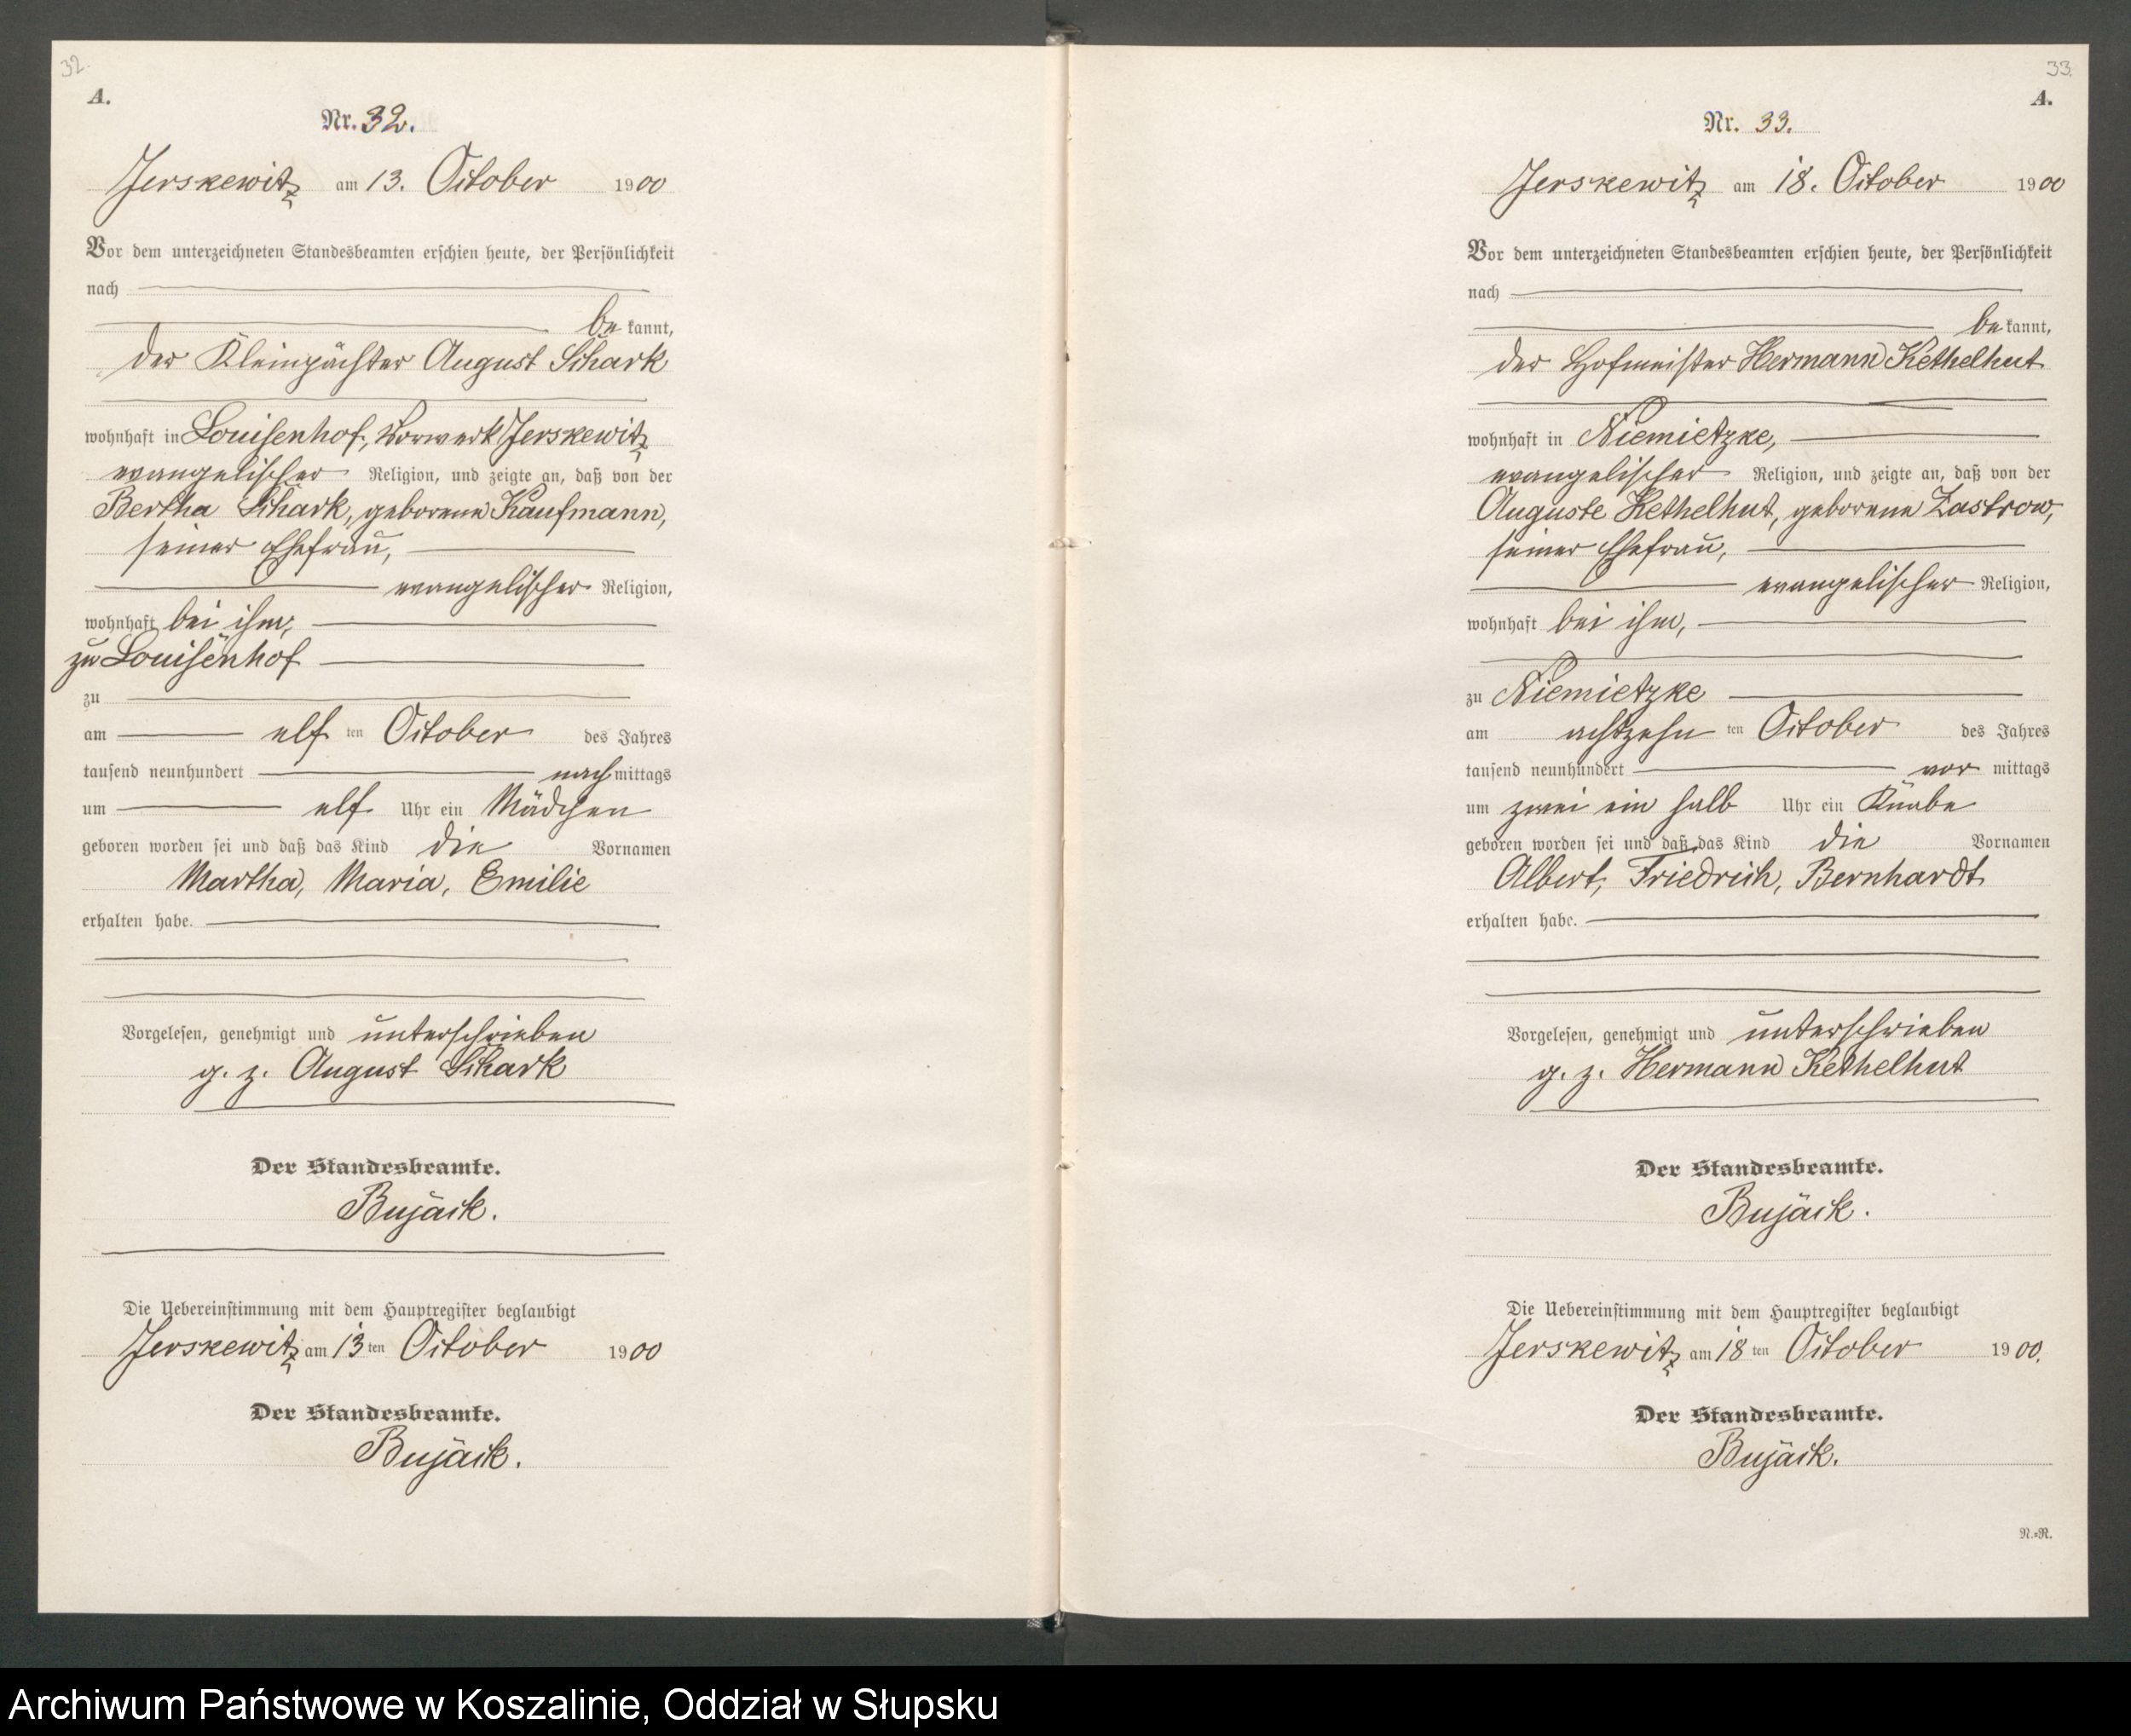 32.
A.
Nr. 32.
Jerskewitz am 13. October 1900
Vor dem unterzeichneten Standesbeamten erschien heute, der Persönlichkeit
nach
be kannt,
der Kleinpächter August Schark
wohnhaft in Louisenhof, Vorwerk Jerskewitz
evangelischer Religion, und zeigte an, daß von der
Bertha Schark, geborene Kaufmann,
seiner Ehefrau,
evangelischer Religion,
wohnhaft bei ihm,
zu Louisenhof
zu
am elf ten October des Jahres
tausend neunhundert nach mittags
um elf Uhr ein Mädchen
geboren worden sei und daß das Kind die Vornamen
Martha, Maria, Emilie
erhalten habe.
Vorgelesen, genehmigt und unterschrieben
g. z. August Schark
Der Standesbeamte.
Bujack.
Die Uebereinstimmung mit dem Hauptregister beglaubigt
Jerskewitz am 13 ten October 1900
Der Standesbeamte.
Bujack.
33.
A.
Nr. 33.
Jerskewitz am 18. October 1900
Vor dem unterzeichneten Standesbeamten erschien heute, der Persönlichkeit
nach
be kannt,
der Hofmeister Hermann Kethelhut
wohnhaft in Niemietzke,
evangelischer Religion, und zeigte an, daß von der
Auguste Kethelhut, geborene Zastrow,
seiner Ehefrau,
evangelischer Religion,
wohnhaft bei ihm,
zu Niemietzke
am achtzehn ten October des Jahres
tausend neunhundert vor mittags
um zwei ein halb Uhr ein Knabe
geboren worden sei und daß das Kind die Vornamen
Albert, Friedrich, Bernhardt
erhalten habe.
Vorgelesen, genehmigt und unterschrieben
g. z. Hermann Kethelhut
Der Standesbeamte.
Bujack.
Die Uebereinstimmung mit dem Hauptregister beglaubigt
Jerskewitz am 18 ten October 1900.
Der Standesbeamte.
Bujack.
N.=R.
Archiwum Państwowe w Koszalinie, Oddział w Słupsku